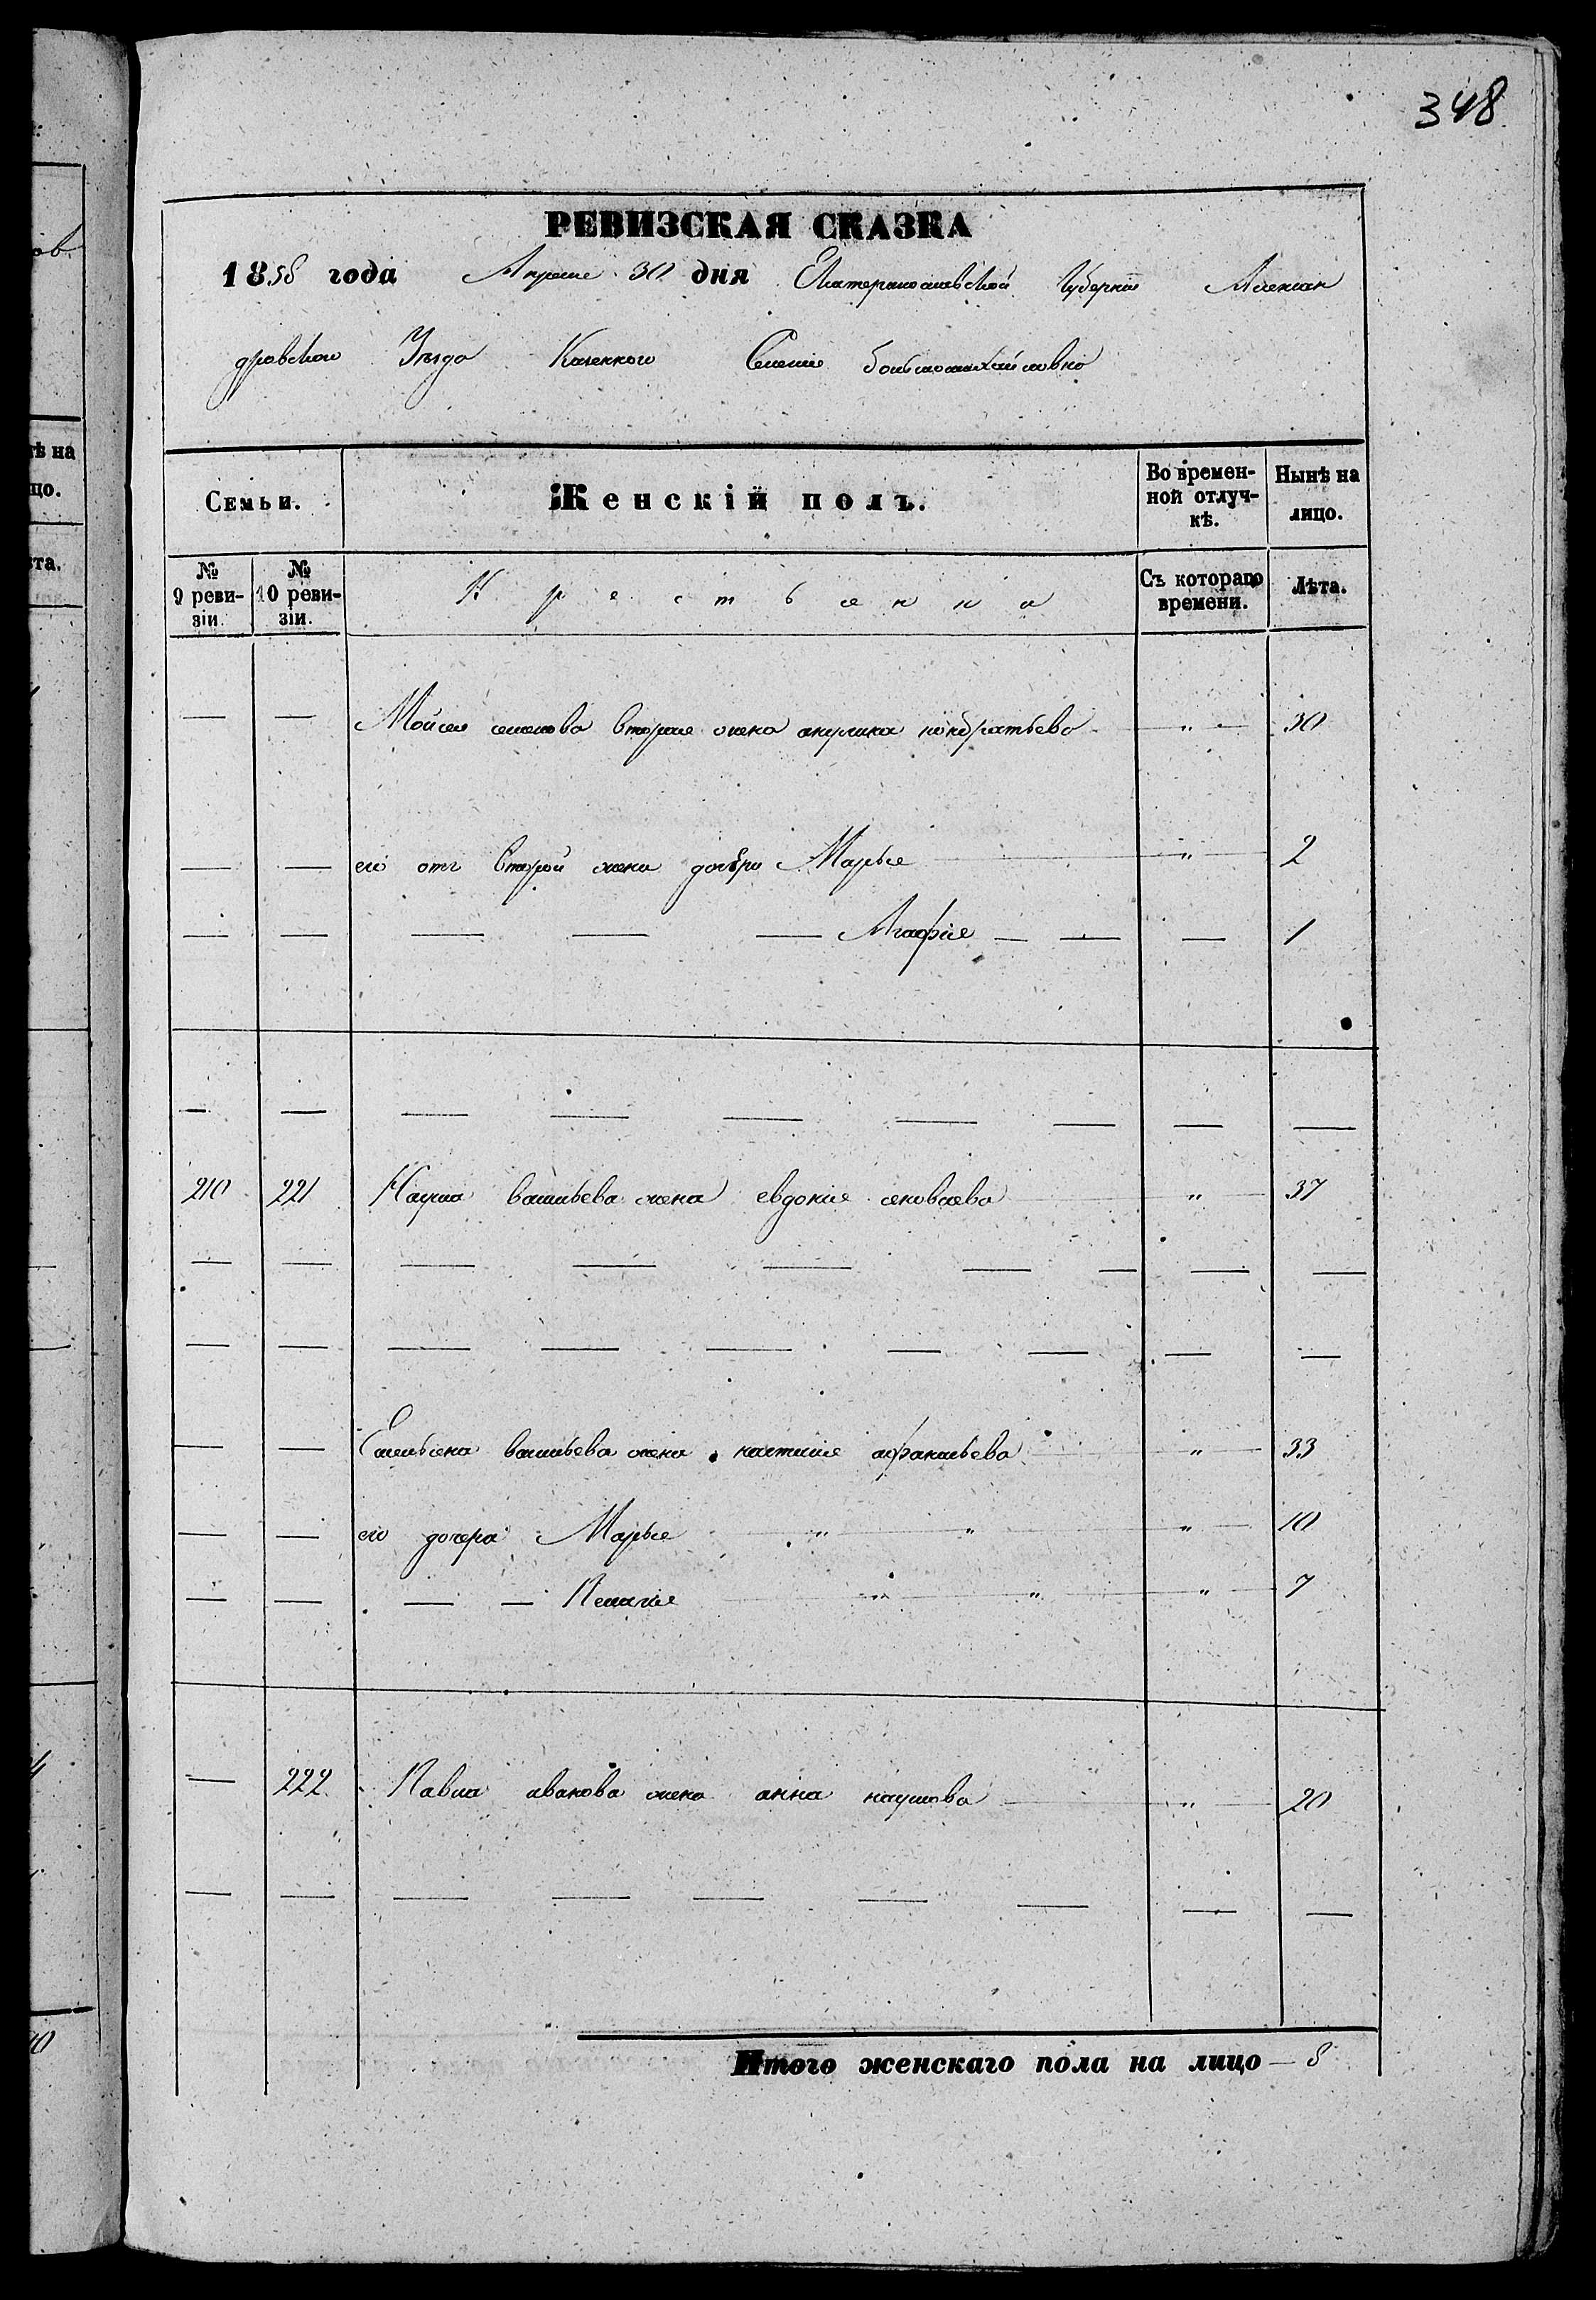 348
РЕВИЗСКАЯ СКАЗКА
1858 года Апреля 30 дня Екатеринославской Губернии Алексан
дровского Уезда Казенного Селения большомихайловка
Семьи. Женскій полъ. Во времен-ной отлуч-кѣ. Нынѣ на лицо.
№ 9 реви-зіи. № 10 реви-зіи. Крестьянки Съ котораго времени. Лѣта.
— — Мойсея семенова вторая жена акулина кондратьева — " — 30
— — его отъ второй жены дочери Марья — " — 2
— — — — — Агафия — — — 1
— — — — — — — — —
210 221 Наума васильева жена евдокия — " — 37
— — — — — — — — —
— — — — — — — — —
— — Емельяна васильева жена афанасьева — " — 33
— — его дочери Марья — " — " — " — 10
— — — — Пелагия — " — " — " — 7
— 222 Павла иванова жена анна наумова — " — 20
— — — — — — — — —
Итого женскаго пола на лицо — 8